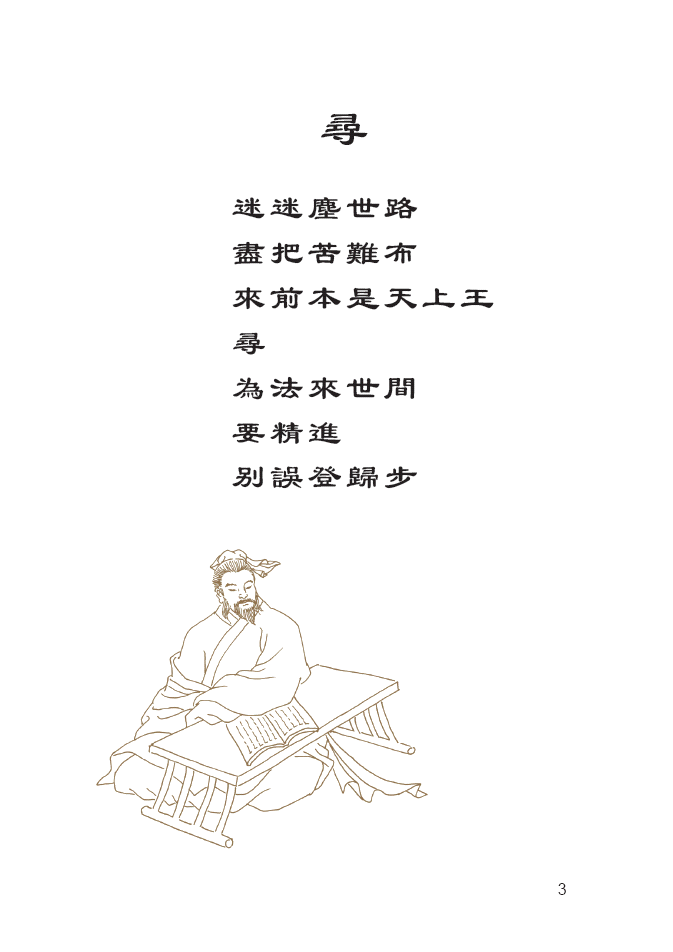 尋
迷迷塵世路
盡把苦難布
來前本是天上王
尋
為法來世間
要精進
別誤登歸步
3